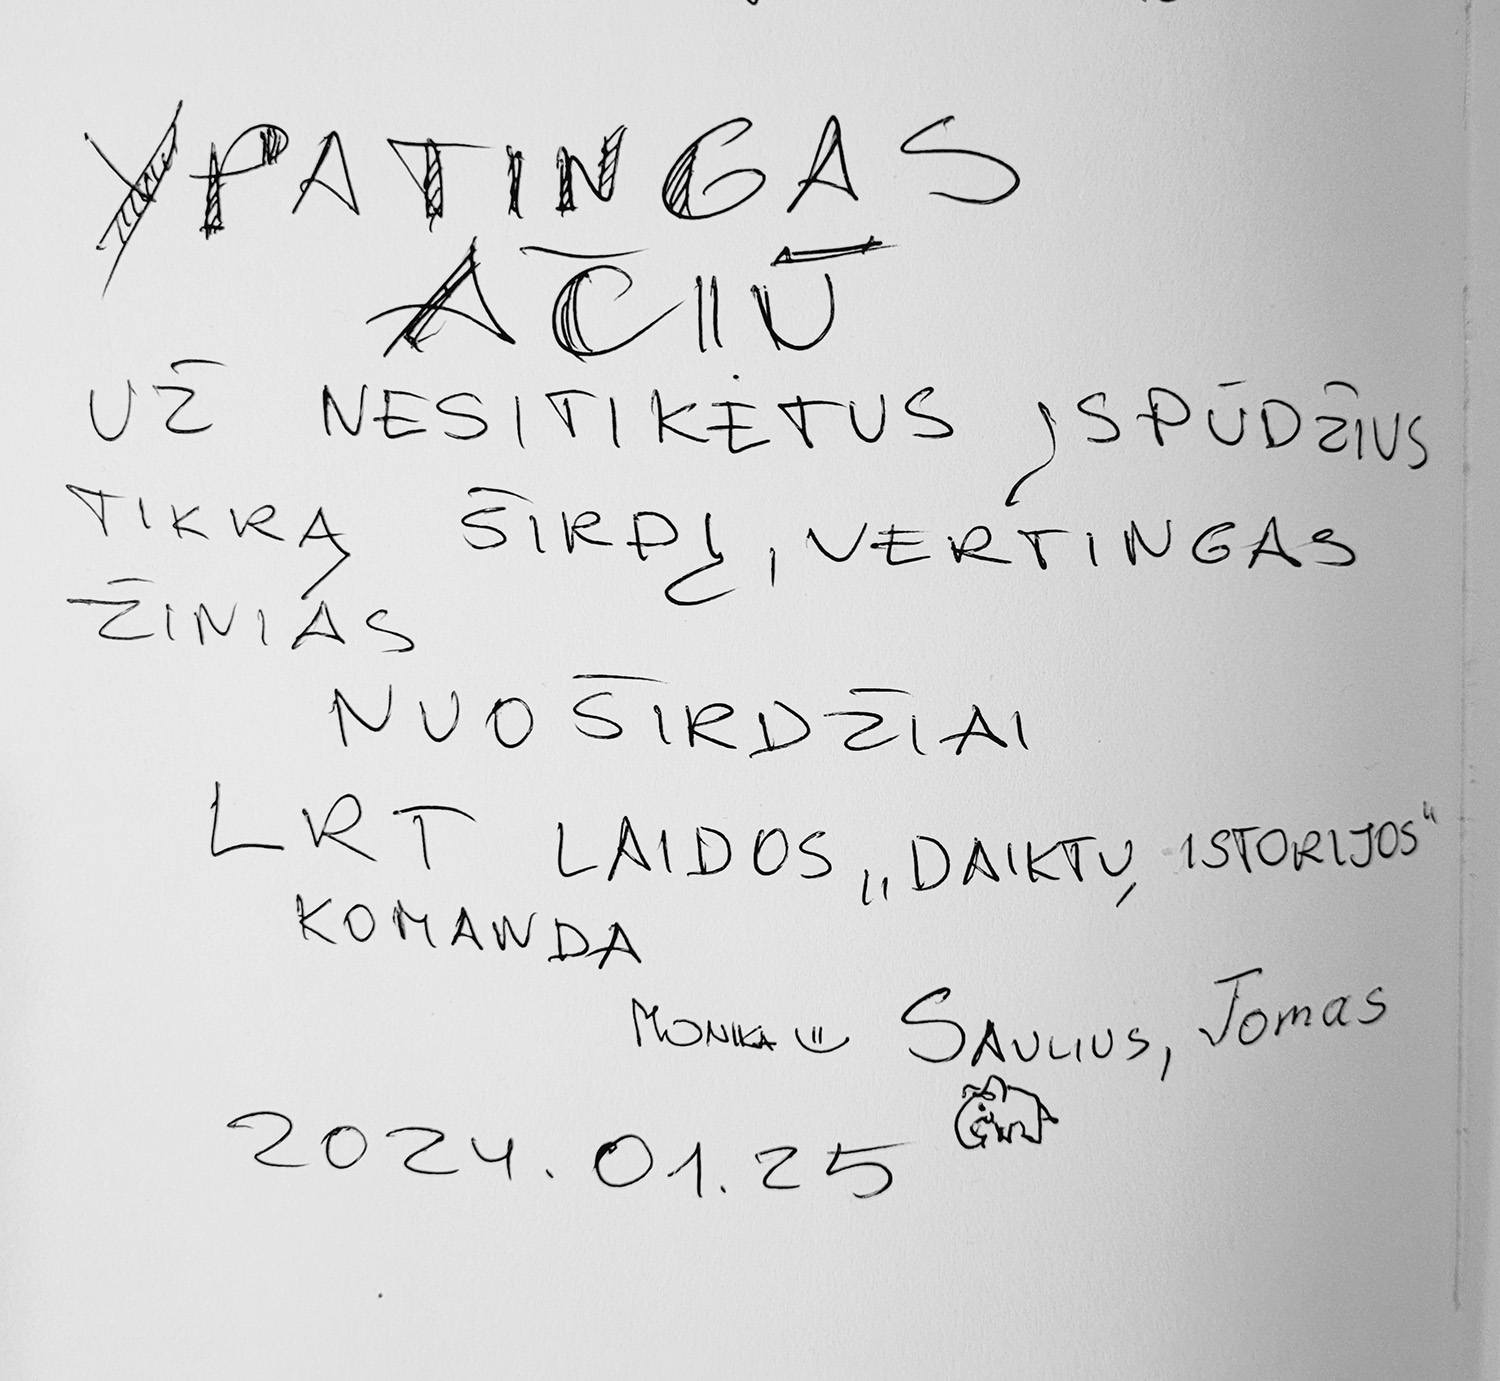 YPATINGAS
AČIŪ
UŽ NESITIKĖTUS ĮSPŪDŽIUS
TIKRĄ ŠIRDĮ, VERTINGAS
ŽINIAS
NUOŠIRDŽIAI
LRT LAIDOS „DAIKTŲ ISTORIJOS“
KOMANDA
MONIKA SAULIUS, Jomas
2024.01.25